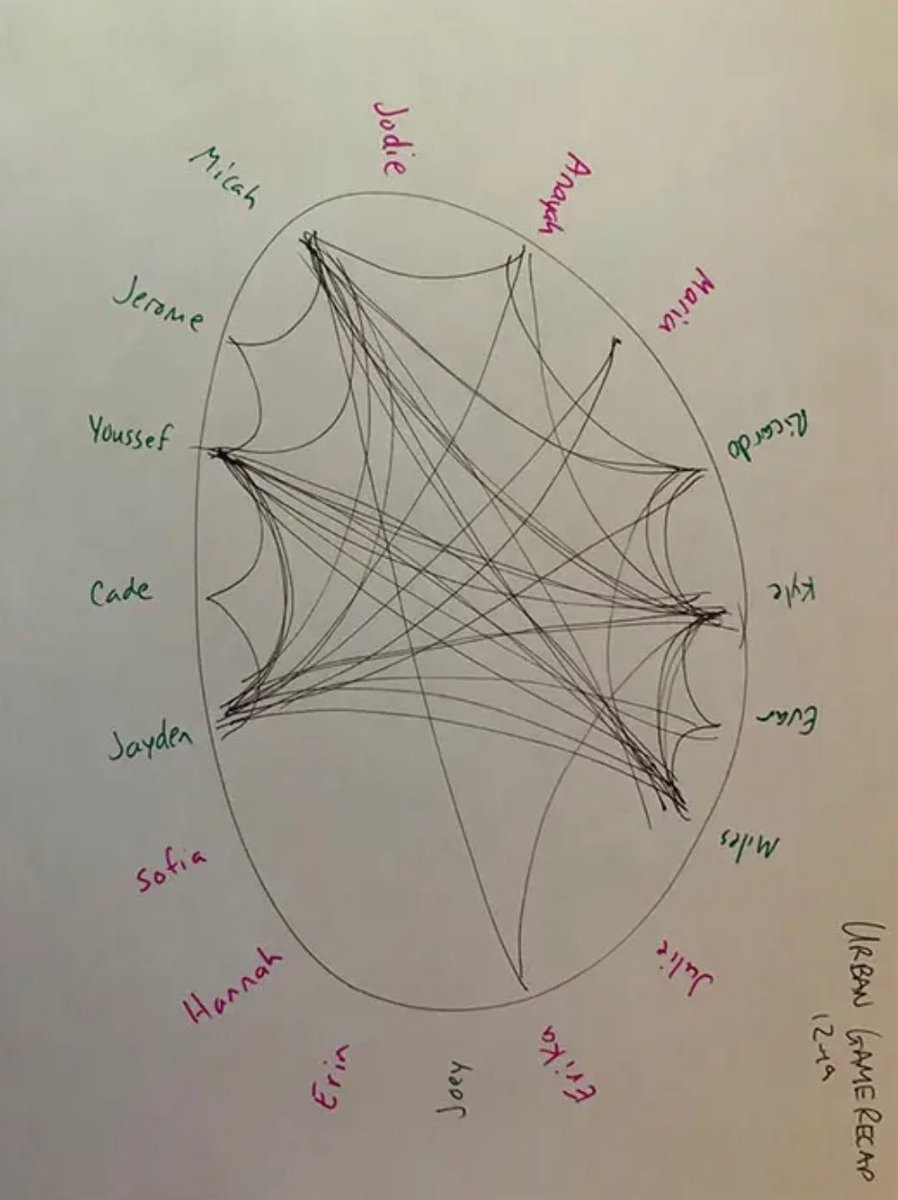 Jodie
Anayah
Maria
Ricardo
Kyle
Evan
Miles
Julie
Erika
Joey
Erin
Hannah
Sofia
Jayden
Cade
Youssef
Jerome
Micah
URBAN GAME RECAP